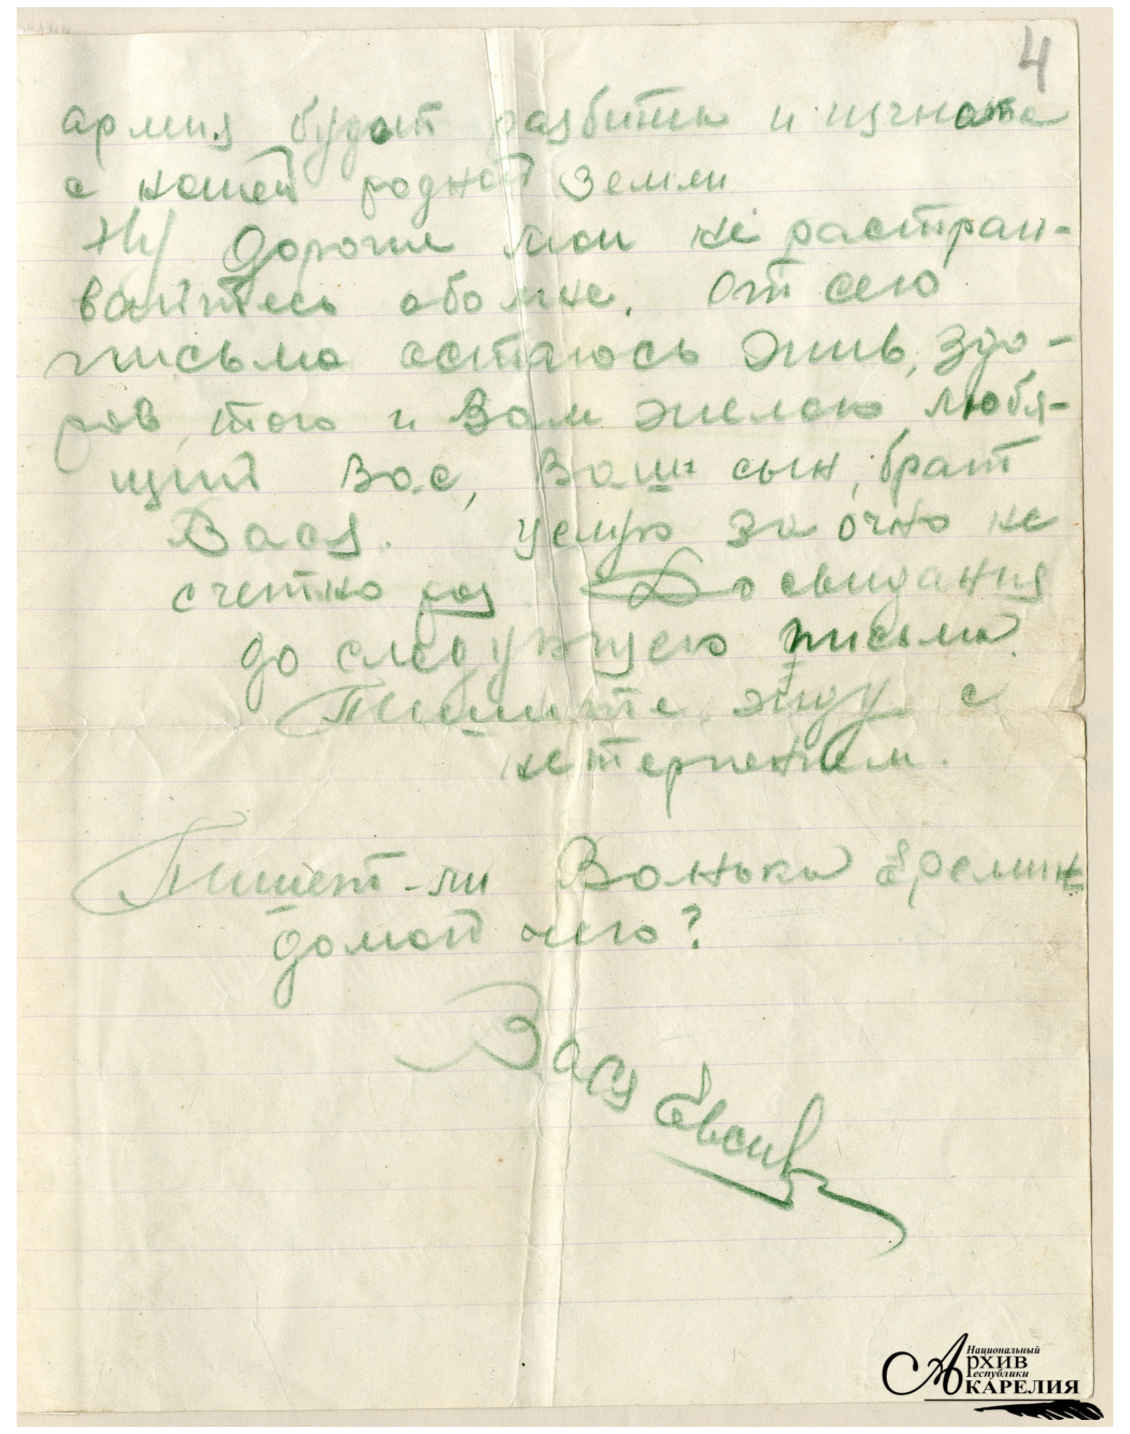 4
армия будет разбита и изгната
с нашей родной земли
Ну дорогие мои не растраи-
вайтесь обо мне. От сего
письма остаюсь жив, здо-
ров, того и Вам желаю любя-
щий Вас, Ваш сын, брат
Вася. целую за очно не
счетно раз До свидания
до следующего письма.
Пишите, жду с
нетерпением.
Пишет-ли Ванька Еремин
домой чего?
Вася
Национальный
Архив
Республики
Карелия